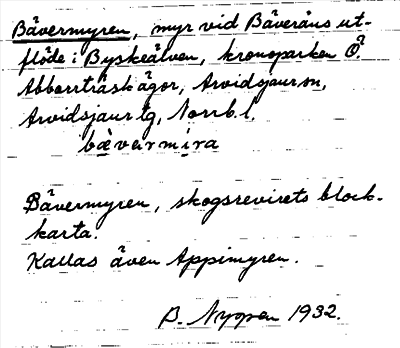 Bävermyren, myr vid Bäveråns ut-
flöde i Byskeälven, kronoparken Ö.
Abborrträskågor, Arvidsjaur sn,
Arvidsjaur tg, Norrb. l.
bævarmira
Bävermyren, skogsrevirets block-
karta.
Kallas även Appimyren.
B. Nyman 1932.